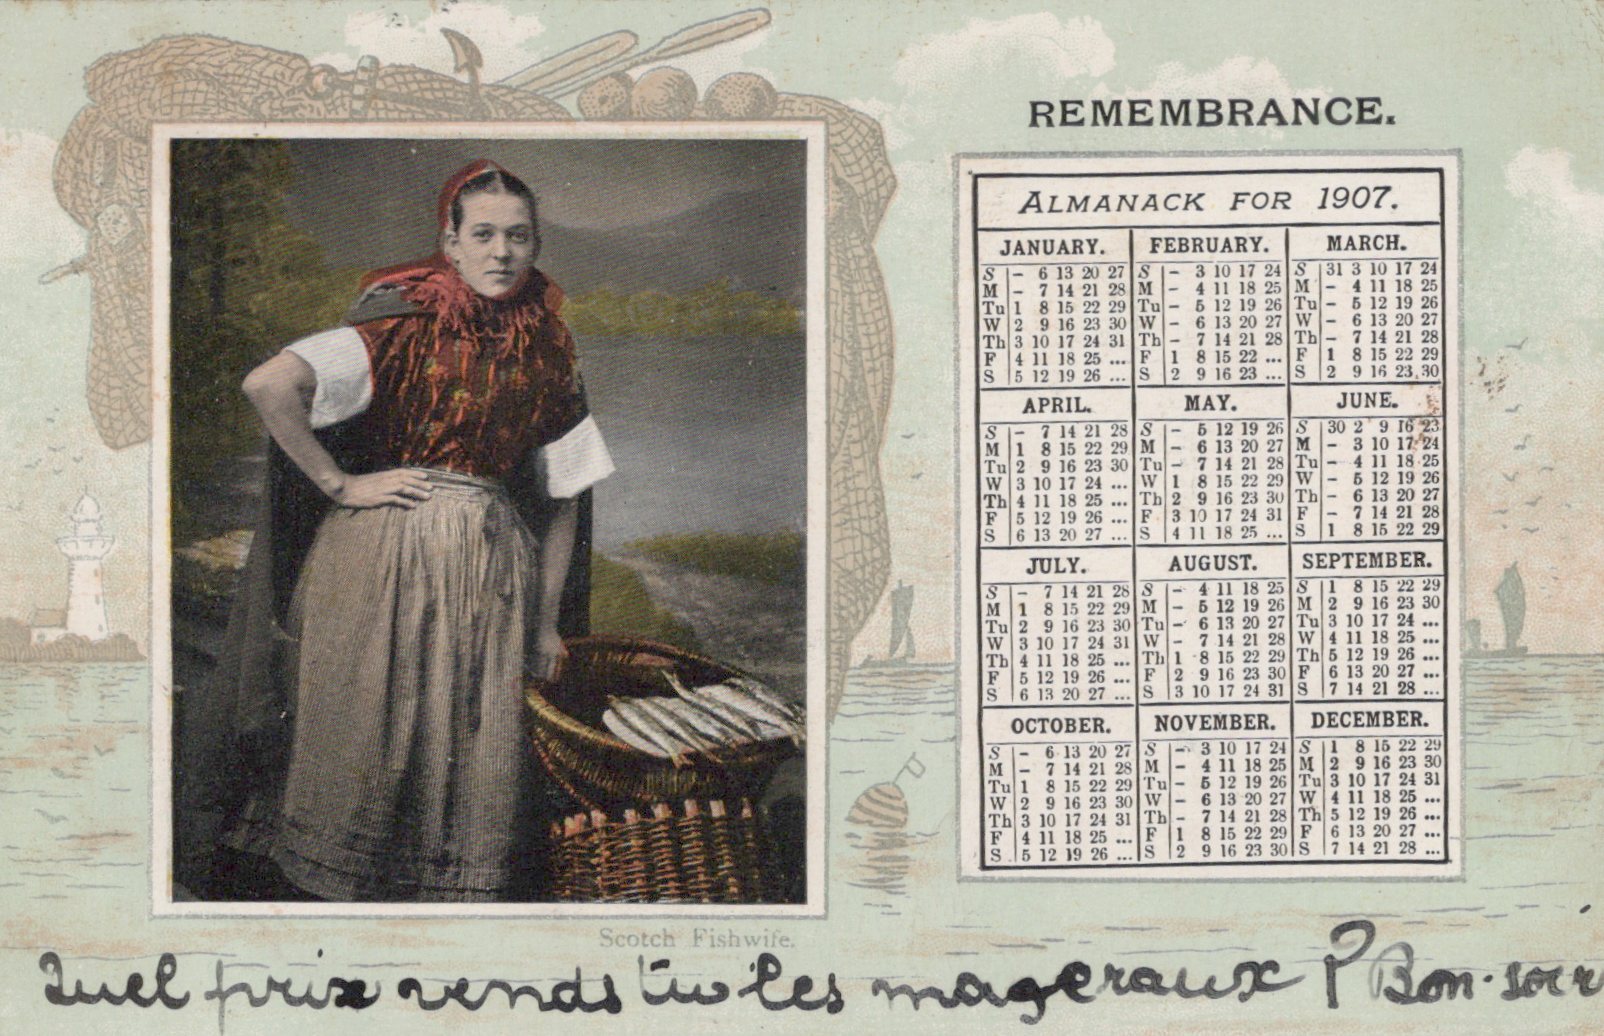 REMEMBRANCE.
ALMANACK FOR 1907.
JANUARY. FEBRUARY. MARCH.
S - 6 13 20 27 S - 3 10 17 24 S 31 3 10 17 24
M - 7 14 21 28 M - 4 11 18 25 M - 4 11 18 25
Tu 1 8 15 22 29 Tu - 5 12 19 26 Tu - 5 12 19 26
W 2 9 16 23 30 W - 6 13 20 27 W - 6 13 20 27
Th 3 10 17 24 31 Th - 7 14 21 28 Th - 7 14 21 28
F 4 11 18 25 ... F 1 8 15 22 ... F 1 8 15 22 29
S 5 12 19 26 ... S 2 9 16 23 ... S 2 9 16 23 30
APRIL. MAY. JUNE.
S - 7 14 21 28 S - 5 12 19 26 S 30 2 9 16 23
M 1 8 15 22 29 M - 6 13 20 27 M - 3 10 17 24
Tu 2 9 16 23 30 Tu - 7 14 21 28 Tu - 4 11 18 25
W 3 10 17 24 ... W 1 8 15 22 29 W - 5 12 19 26
Th 4 11 18 25 ... Th 2 9 16 23 30 Th - 6 13 20 27
F 5 12 19 26 ... F 3 10 17 24 31 F - 7 14 21 28
S 6 13 20 27 ... S 4 11 18 25 ... S 1 8 15 22 29
JULY. AUGUST. SEPTEMBER.
S - 7 14 21 28 S - 4 11 18 25 S 1 8 15 22 29
M 1 8 15 22 29 M - 5 12 19 26 M 2 9 16 23 30
Tu 2 9 16 23 30 Tu - 6 13 20 27 Tu 3 10 17 24 ...
W 3 10 17 24 31 W - 7 14 21 28 W 4 11 18 25 ...
Th 4 11 18 25 ... Th 1 8 15 22 29 Th 5 12 19 26 ...
F 5 12 19 26 ... F 2 9 16 23 30 F 6 13 20 27 ...
S 6 13 20 27 ... S 3 10 17 24 31 S 7 14 21 28 ...
OCTOBER. NOVEMBER. DECEMBER.
S - 6 13 20 27 S - 3 10 17 24 S 1 8 15 22 29
M - 7 14 21 28 M - 4 11 18 25 M 2 9 16 23 30
Tu 1 8 15 22 29 Tu - 5 12 19 26 Tu 3 10 17 24 31
W 2 9 16 23 30 W - 6 13 20 27 W 4 11 18 25 ...
Th 3 10 17 24 31 Th - 7 14 21 28 Th 5 12 19 26 ...
F 4 11 18 25 ... F 1 8 15 22 29 F 6 13 20 27 ...
S 5 12 19 26 ... S 2 9 16 23 30 S 7 14 21 28 ...
Scotch Fishwife.
Quel prix vends tu les mageraux ? Bon-soir